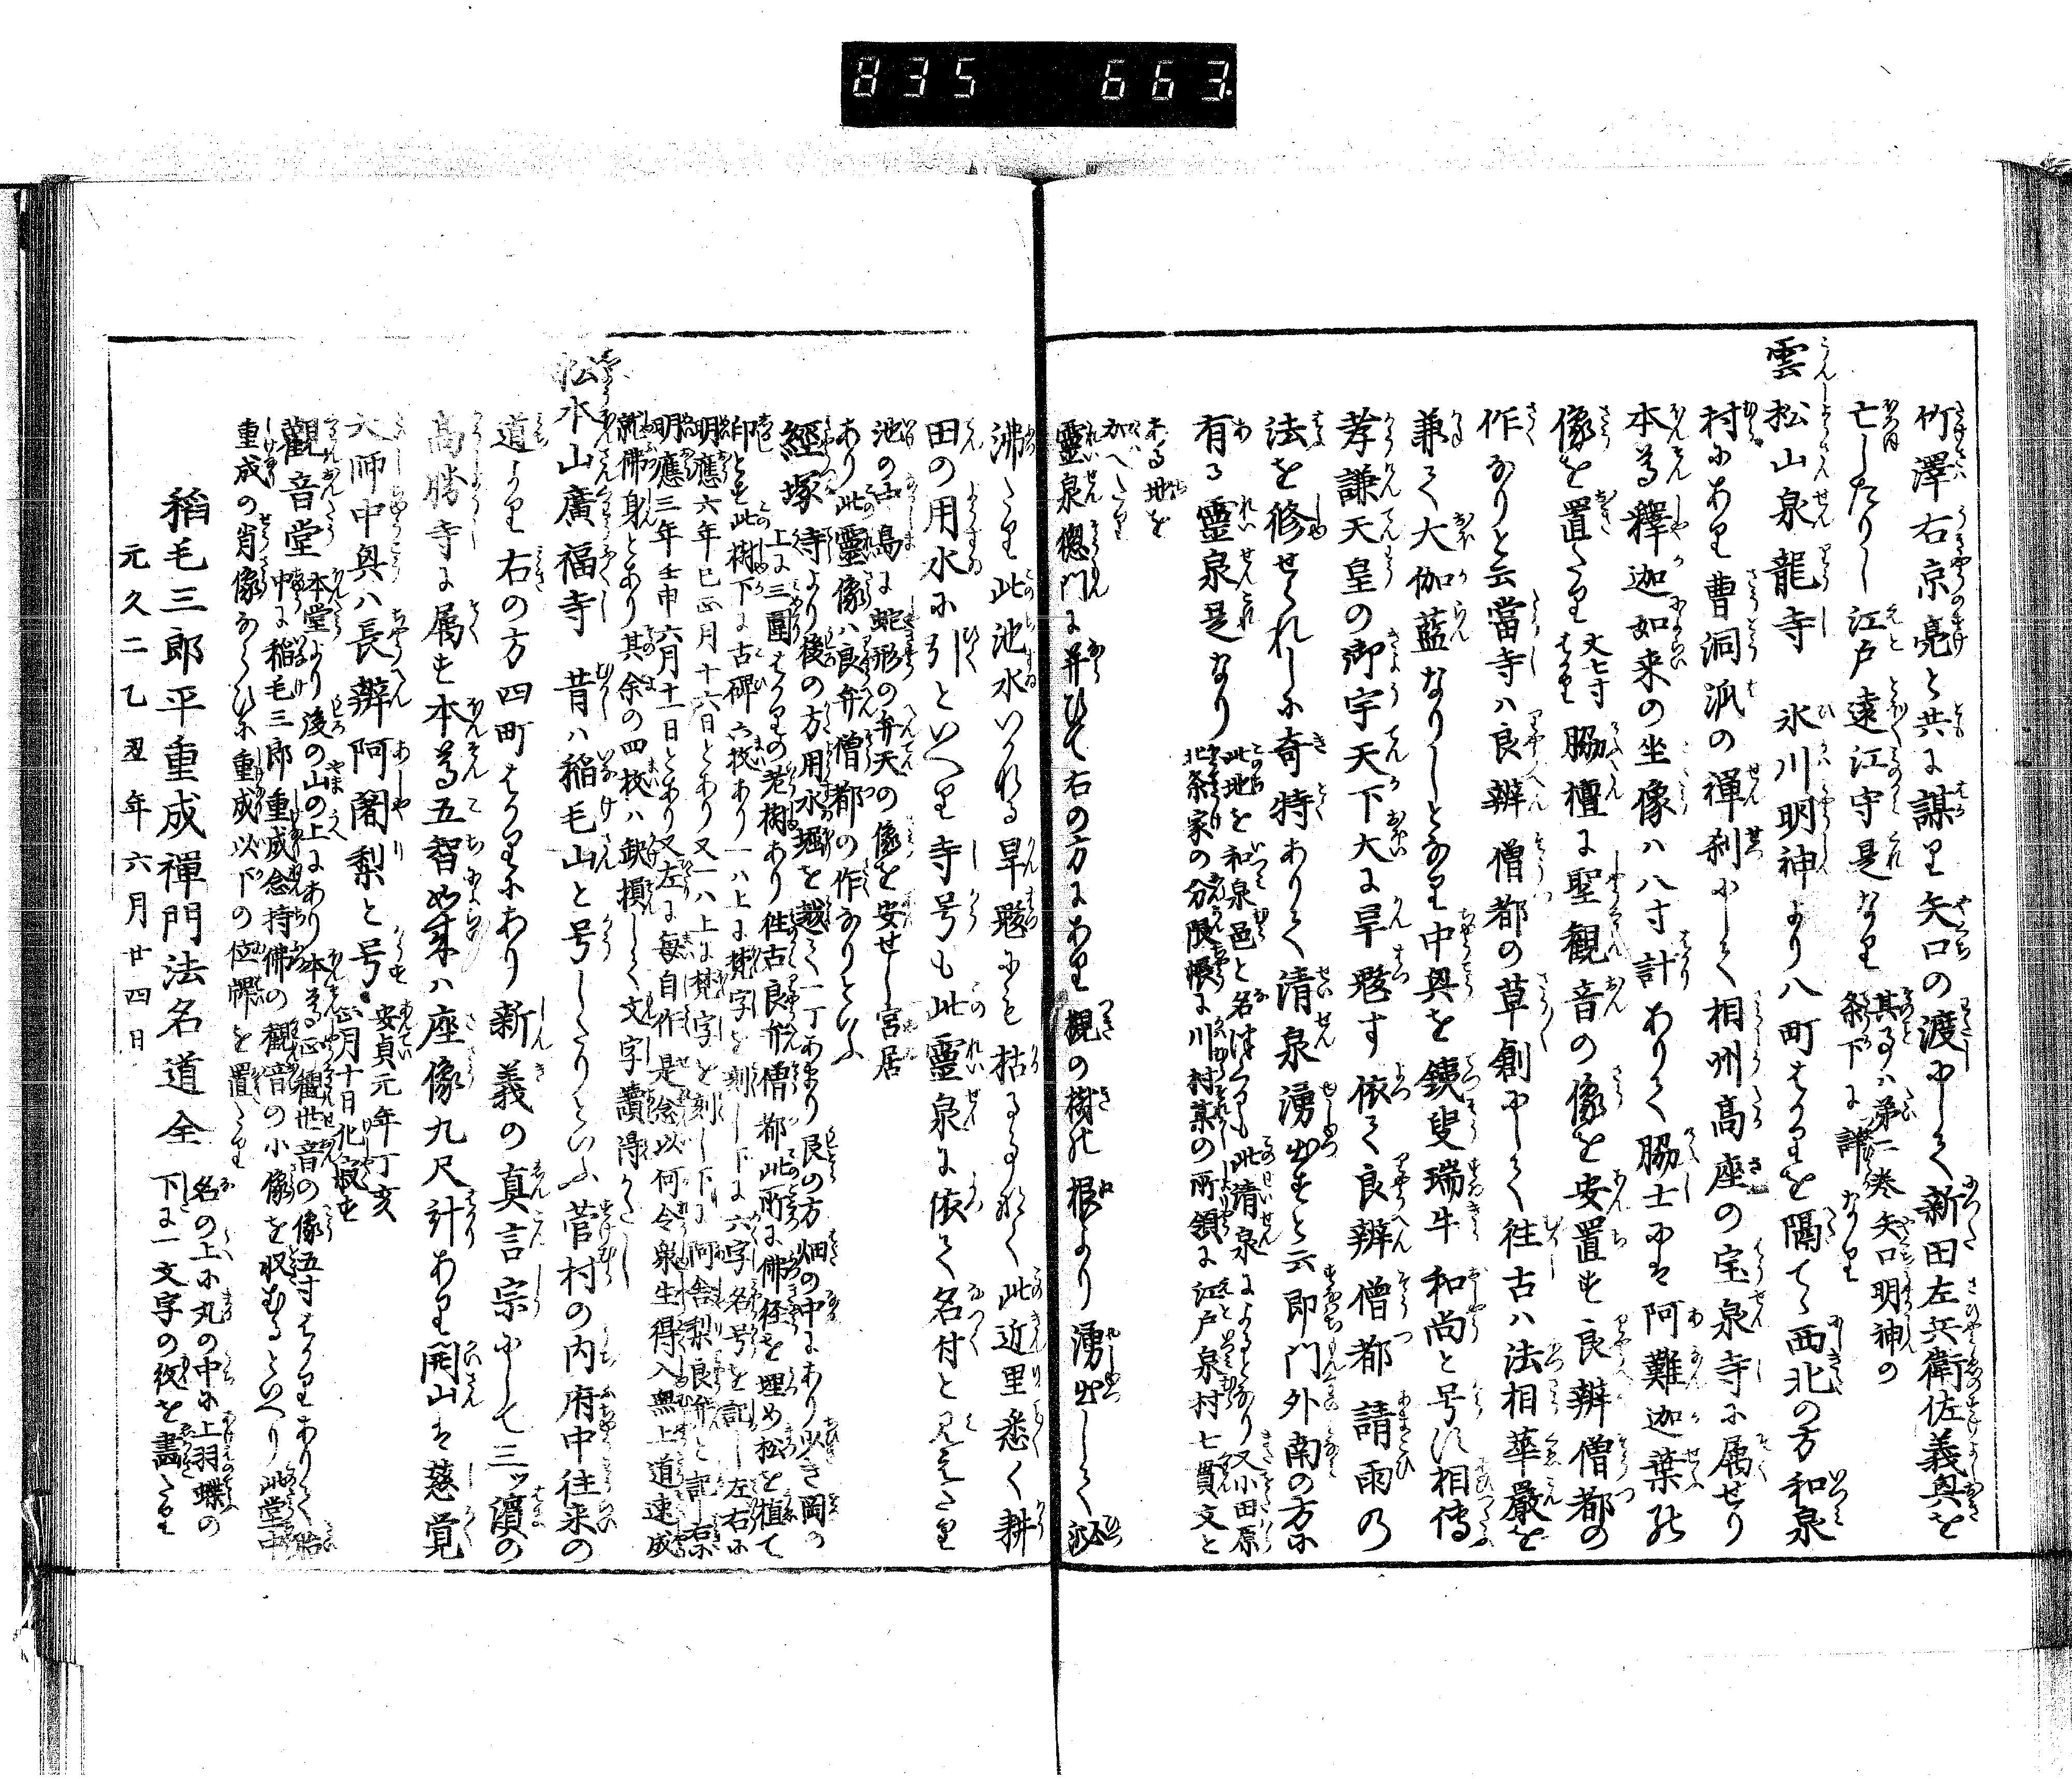 835 663
竹澤右京亮と共に謀り矢口の渡にして新田左兵衛佐義興を
亡したりし江戸遠江守是なり
其事ハ第二巻矢口明神の
条下に詳なり
雲松山泉龍寺 氷川明神より八町はかりを隔てゝ西北の方和泉
村にあり曹洞派の禅刹にして相州高座の宝泉寺に属せり
本尊釋迦如来の坐像ハ八寸計ありて脇士にハ阿難迦葉の
像を置たり
丈七寸
はかり
脇檀に聖観音の像を安置す良辨僧都の
作なりと云當寺ハ良辨僧都の草創にして往古ハ法相華嚴を
兼て大伽藍なりしとなり中興を鉄叟瑞牛和尚と号に相傳
孝謙天皇の御宇天下大に旱魃す依て良辨僧都請雨の
法を修せられしに奇特ありて清泉湧出すと云即門外南の方に
有る靈泉是なり
此地を和泉邑と名はくるも此清泉によるとなり又小田原
北条家の分限帳に川村某の所領に江戸泉村七貫文と
ある地を
加へたり
靈泉 總門に并ひて右の方にあり槻の樹の根より湧出して
沸たり此池水いかなる旱魃にも枯る事なく此近里悉く耕
田の用水に引といへり寺号も此靈泉に依て名付と見えたり
池の中島に蛇形の弁天の像を安せし宮居
あり此靈像ハ良弁僧都の作なりといふ
經塚 寺より後の方用水堀を越て一丁あまり艮の方畑の中にあり少き岡の
上に三圍はかりの老樹あり往古良弁僧都此所に佛経を埋め松を植て
印とす此樹下に古碑六枚あり一ハ上に梵字を刻し下に六字名号を記し左右に
明應六年巳正月十六日とあり又一ハ上に梵字を刻し下に阿舎梨良弁と記し右に
明應三年壬申六月十一日とあり又左に毎自作是念以何令衆生得入無上道速成
就佛身とあり其余の四枚ハ缺損して文字讀得かたし
松本山廣福寺 昔ハ稲毛山と号したりといふ菅村の内府中往来の
道より右の方四町はかりにあり新義の真言宗にして三ッ濱の
髙勝寺に属す本尊五智如来ハ座像九尺計あり開山を慈覚
大師中興ハ長辨阿闍梨と号す
安貞元年丁亥
正月十日化寂す
觀音堂 本堂より後の山の上にあり本尊正觀世音の像五寸はかりありて胎
中に稲毛三郎重成念持佛の觀音の小像を収むるといへり此堂中
重成の肖像ならひに重成以下の位牌を置たり
稻毛三郎平重成禪門法名道全
名の上に丸の中に上羽蝶の
下に一文字の紋を畫たり
元久二乙丑年六月廿四日